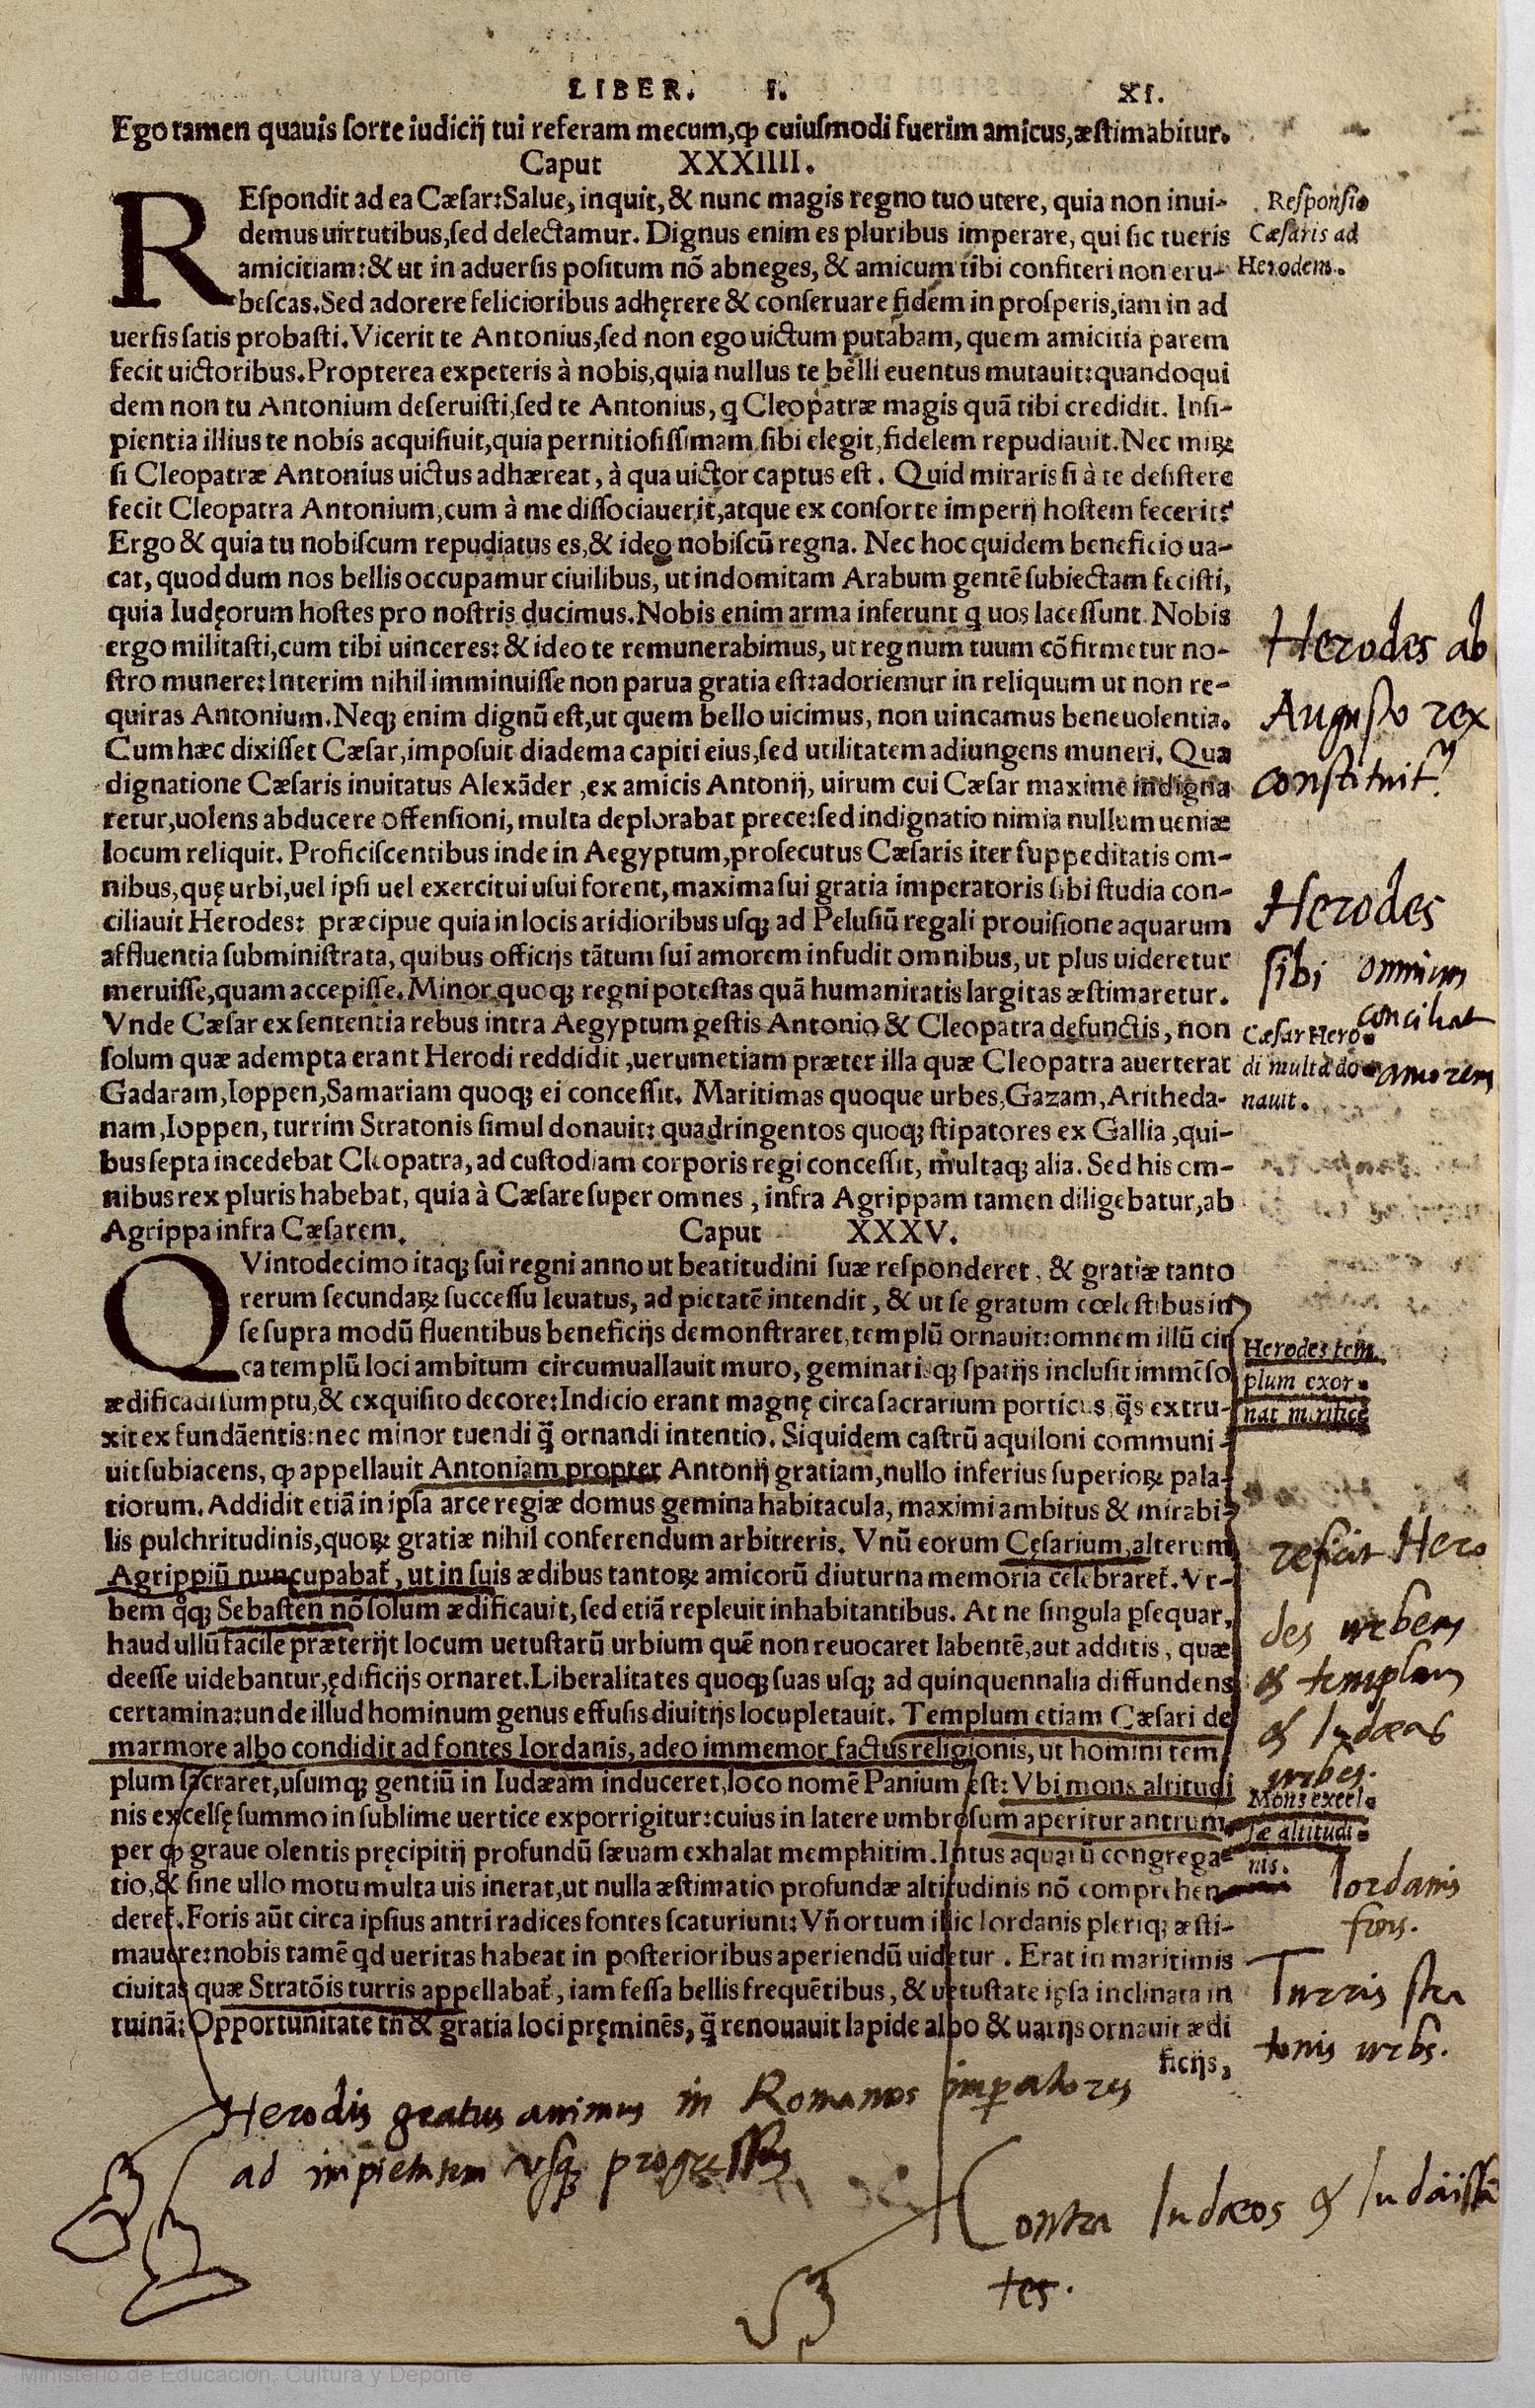 LIBER. I. XI.
Ego tamen quauis sorte iudicij tui referam mecum, ꝙ cuiusmodi fuerim amicus, æstimabitur.
Caput XXXIIII.
REspondit ad ea Cæsar: Salue, inquit, & nunc magis regno tuo utere, quia non inui-
demus uirtutibus, sed delectamur. Dignus enim es pluribus imperare, qui sic tueris
amicitiam: & ut in aduersis positum nõ abneges, & amicum tibi confiteri non eru-
bescas. Sed adorere felicioribus adhęrere & conseruare fidem in prosperis, iam in ad
uersis satis probasti. Vicerit te Antonius, sed non ego uictum putabam, quem amicitia parem
fecit uictoribus. Propterea expeteris à nobis, quia nullus te belli euentus mutauit: quandoqui
dem non tu Antonium deseruisti, sed te Antonius, q Cleopatræ magis quã tibi credidit. Insi-
pientia illius te nobis acquisiuit, quia pernitiosissimam sibi elegit, fidelem repudiauit. Nec miꝝ
si Cleopatræ Antonius uictus adhæreat, à qua uictor captus est. Quid miraris si à te desistere
fecit Cleopatra Antonium, cum à me dissociauerit, atque ex consorte imperij hostem fecerit?
Ergo & quia tu nobiscum repudiatus es, & ideo nobiscũ regna. Nec hoc quidem beneficio ua-
cat, quod dum nos bellis occupamur ciuilibus, ut indomitam Arabum gentẽ subiectam fecisti,
quia Iudęorum hostes pro nostris ducimus. Nobis enim arma inferunt q uos lacessunt. Nobis
ergo militasti, cum tibi uinceres: & ideo te remunerabimus, ut regnum tuum cõfirmetur no-
stro munere: Interim nihil imminuisse non parua gratia est: adoriemur in reliquum ut non re-
quiras Antonium. Neq; enim dignũ est, ut quem bello uicimus, non uincamus beneuolentia.
Cum hæc dixisset Cæsar, imposuit diadema capiti eius, sed utilitatem adiungens muneri. Qua
dignatione Cæsaris inuitatus Alexãder, ex amicis Antonij, uirum cui Cæsar maxime indigna
retur, uolens abducere offensioni, multa deplorabat prece: sed indignatio nimia nullum ueniæ
locum reliquit. Proficiscentibus inde in Aegyptum, prosecutus Cæsaris iter suppeditatis om-
nibus, quę urbi, uel ipsi uel exercitui usui forent, maxima sui gratia imperatoris sibi studia con-
ciliauit Herodes: præcipue quia in locis aridioribus usq; ad Pelusiũ regali prouisione aquarum
affluentia subministrata, quibus officijs tãtum sui amorem infudit omnibus, ut plus uideretur
meruisse, quam accepisse. Minor quoq; regni potestas quã humanitatis largitas æstimaretur.
Vnde Cæsar ex sententia rebus intra Aegyptum gestis Antonio & Cleopatra defunctis, non
solum quæ adempta erant Herodi reddidit, uerumetiam præter illa quæ Cleopatra auerterat
Gadaram, Ioppen, Samariam quoq; ei concessit. Maritimas quoque urbes, Gazam, Aritheda-
nam, Ioppen, turrim Stratonis simul donauit: quadringentos quoq; stipatores ex Gallia, qui-
bus septa incedebat Cleopatra, ad custodiam corporis regi concessit, multaq; alia. Sed his om-
nibus rex pluris habebat, quia à Cæsare super omnes, infra Agrippam tamen diligebatur, ab
Agrippa infra Cæsarem. Caput XXXV.
QVintodecimo itaq; sui regni anno ut beatitudini suæ responderet, & gratiæ tanto
rerum secundaꝝ successu leuatus, ad pietatẽ intendit, & ut se gratum cœlestibus in
se supra modũ fluentibus beneficijs demonstraret, templũ ornauit: omnem illũ cir
ca templũ loci ambitum circumuallauit muro, geminatisq; spatijs inclusit immẽso
ædificãdi sumptu, & exquisito decore: Indicio erant magnę circa sacrarium porticus, q̃s extru-
xit ex fundãentis: nec minor tuendi q̃ ornandi intentio. Siquidem castrũ aquiloni communi-
uit subiacens, ꝙ appellauit Antoniam propter Antonij gratiam, nullo inferius superioꝝ pala-
tiorum. Addidit etiã in ipsa arce regiæ domus gemina habitacula, maximi ambitus & mirabi-
lis pulchritudinis, quoꝝ gratiæ nihil conferendum arbitreris. Vnũ eorum Cęsarium, alterum
Agrippiũ nuncupabat̃, ut in suis ædibus tantoꝝ amicorũ diuturna memoria celebraret̃. Vr-
bem q̊q; Sebasten nõ solum ædificauit, sed etiã repleuit inhabitantibus. At ne singula ꝑsequar,
haud ullũ facile præterijt locum uetustarũ urbium quẽ non reuocaret labentẽ, aut additis, quæ
deesse uidebantur, ędificijs ornaret. Liberalitates quoq; suas usq; ad quinquennalia diffundens
certamina: unde illud hominum genus effusis diuitijs locupletauit. Templum etiam Cæsari de
marmore albo condidit ad fontes Iordanis, adeo immemor factus religionis, ut homini tem
plum sacraret, usumq; gentiũ in Iudæam induceret, loco nomẽ Panium est: Vbi mons altitudi
nis excelsę summo in sublime uertice exporrigitur: cuius in latere umbrosum aperitur antrum
per ꝙ graue olentis pręcipitij profundũ sæuam exhalat memphitim. Intus aquarũ congrega-
tio, & sine ullo motu multa uis inerat, ut nulla æstimatio profundæ altitudinis nõ comprehen
deret̃. Foris aũt circa ipsius antri radices fontes scaturiunt: Vñ ortum illic Iordanis pleriq; æsti-
mauere: nobis tamẽ qd ueritas habeat in posterioribus aperiendũ uidetur. Erat in maritimis
ciuitas quæ Stratõis turris appellabat̃, iam fessa bellis frequẽtibus, & uetustate ipsa inclinata in
ruinã: Opportunitate tñ & gratia loci pręminẽs, q̃ renouauit lapide albo & uarijs ornauit ædi
ficijs,
Responsio
Cæsaris ad
Herodem.
Herodes ab
Augusto rex
constituit^r.
Herodes
sibi omnium
conciliat
amorem
Cæsar Hero-
di multa do-
nauit.
Herodes tem-
plum exor-
nat mirifice
reficit Hero
des urbem
& templum
& Iudæas
urbes.
Mons excel-
sæ altitudi-
nis.
Iordanis
fons.
Turris stra
tonis urbs.
Herodis gratus animus in Romanos imperatores
ad impietatem usq; progressus
Contra Iudæos & Iudaissã
tes.
Ministerio de Educación, Cultura y Deporte